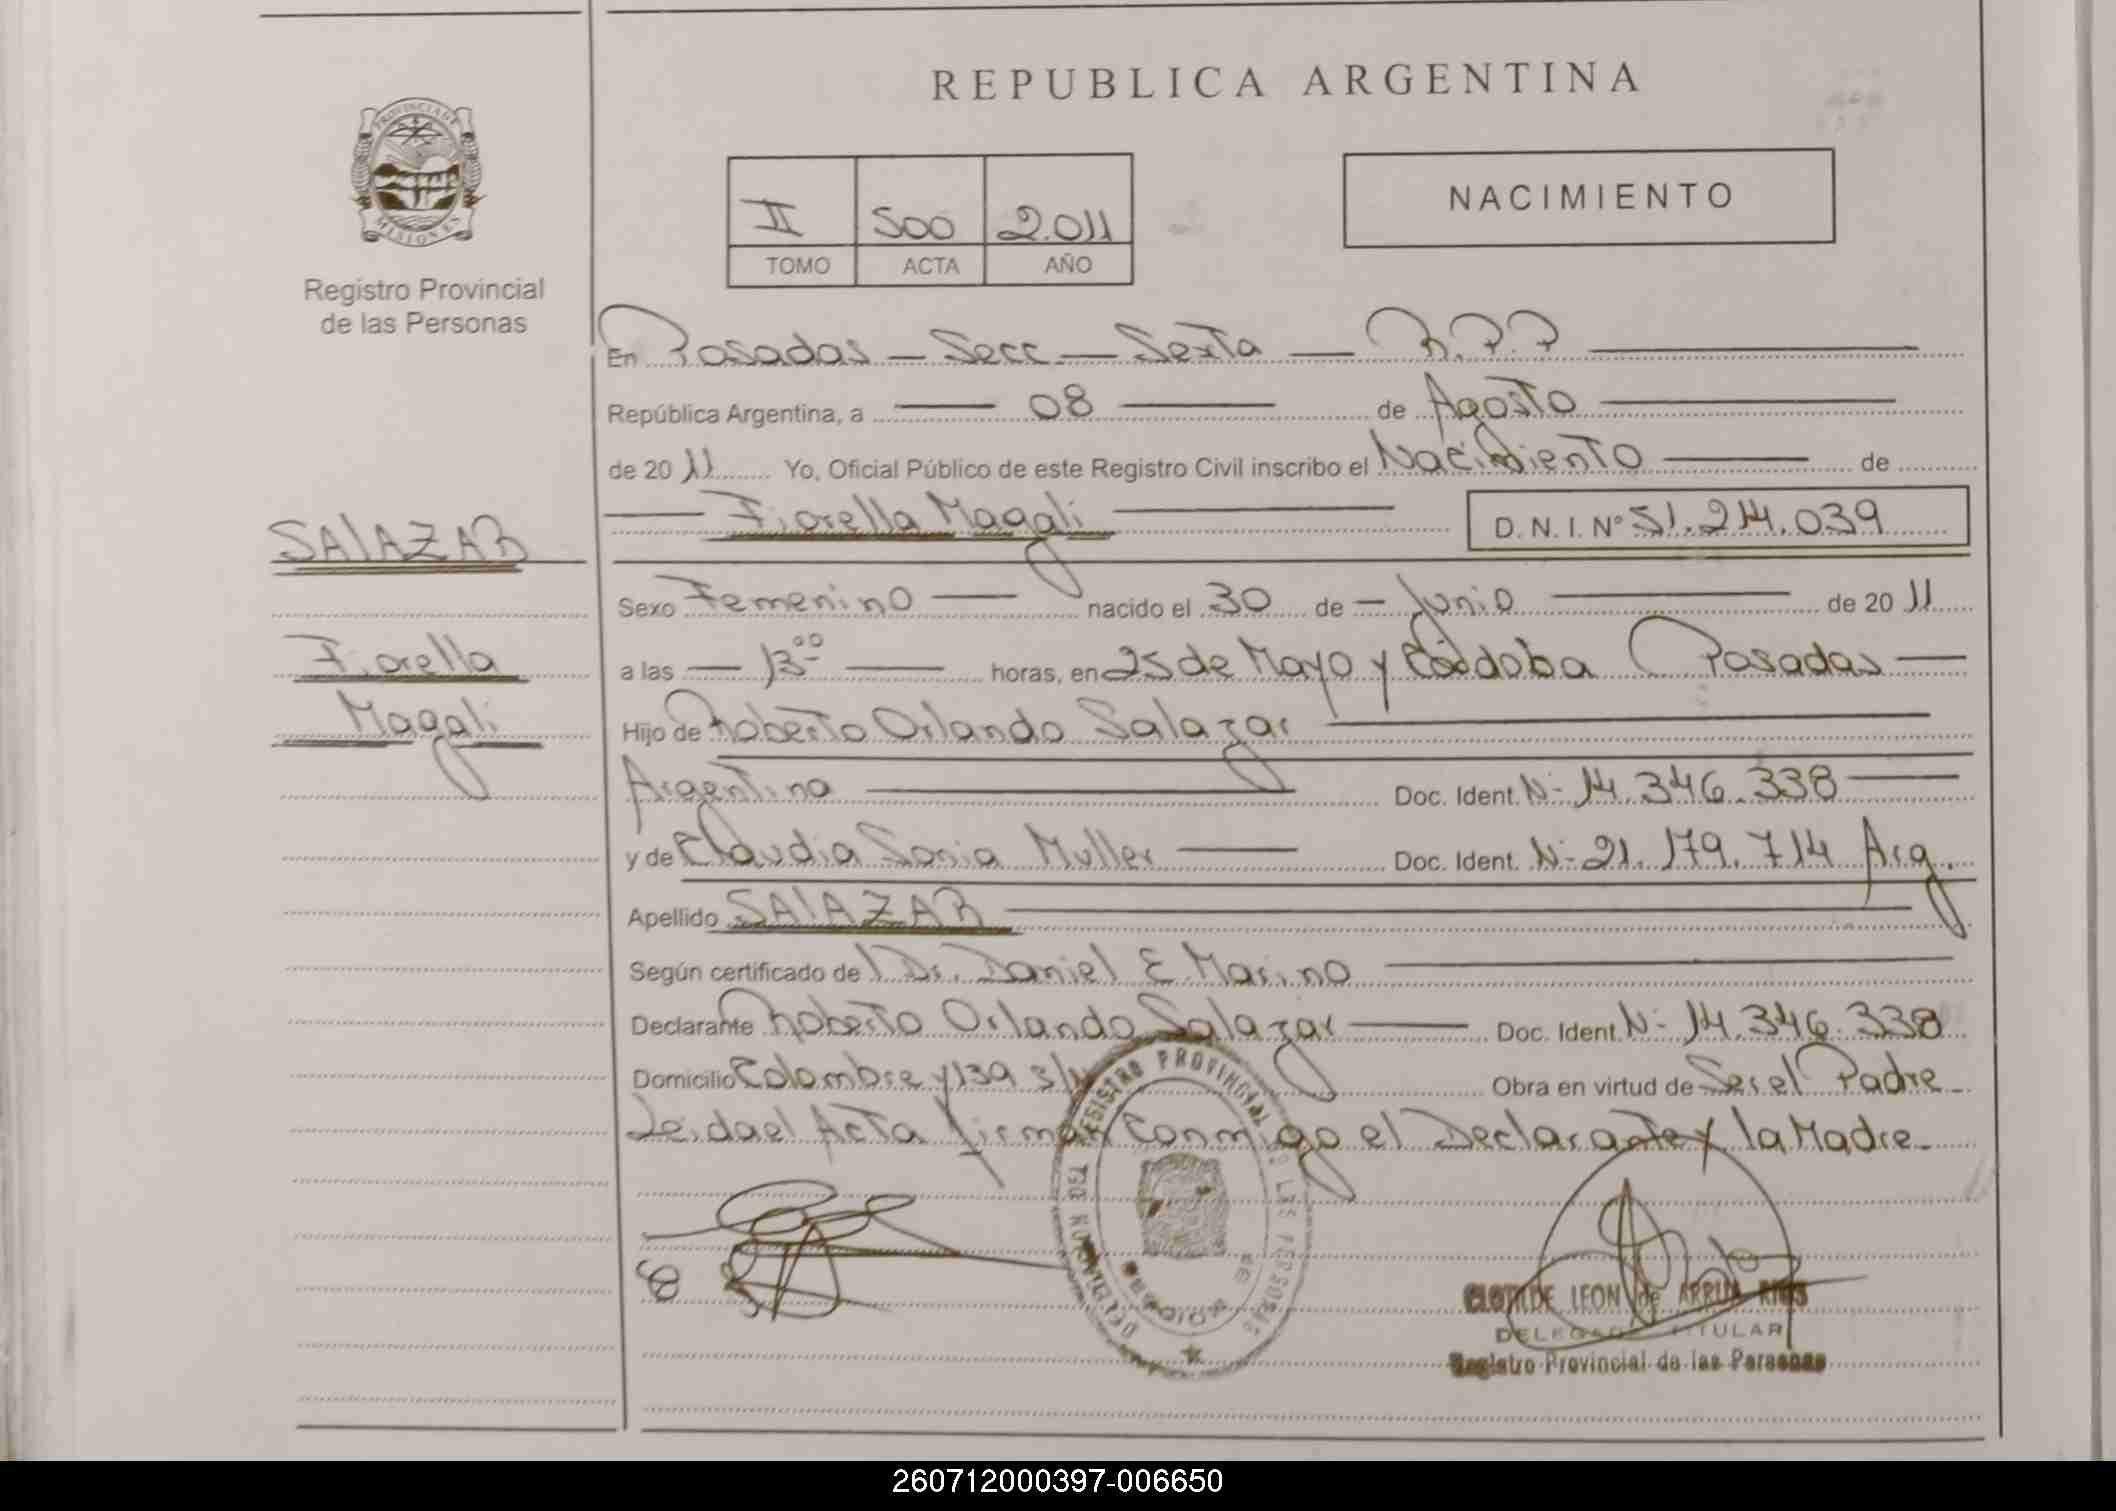 REPUBLICA ARGENTINA
PROVINCIA DE
MISIONES
Registro Provincial
de las Personas
II 500 2.011
TOMO ACTA AÑO
NACIMIENTO
En Posadas - Secc - Sexta - R.P.P
República Argentina, a 08 de Agosto
de 20 11 Yo, Oficial Público de este Registro Civil inscribo el Nacimiento de
Fiorella Magali D.N.I. Nº 51.214.039
SALAZAR
Fiorella
Magali
Sexo Femenino nacido el 30 de Junio de 20 11
a las 13 00 horas, en 25 de Mayo y Córdoba Posadas
Hijo de Roberto Orlando Salazar
Argentino Doc. Ident. N- 14.346.338
y de Claudia Sonia Muller Doc. Ident. N- 21.179.714 Arg.
Apellido SALAZAR
Según certificado de Dr. Daniel E. Marino
Declarante Roberto Orlando Salazar Doc. Ident. N- 14.346.338
Domicilio Colombre y 139 Obra en virtud de Ser el Padre
Leida el Acta firman conmigo el Declarante y la Madre
REGISTRO PROVINCIAL DE LAS PERSONAS
CLOTILDE LEON de ARRUA RIOS
DELEGADA TITULAR
Registro Provincial de las Personas
260712000397-006650